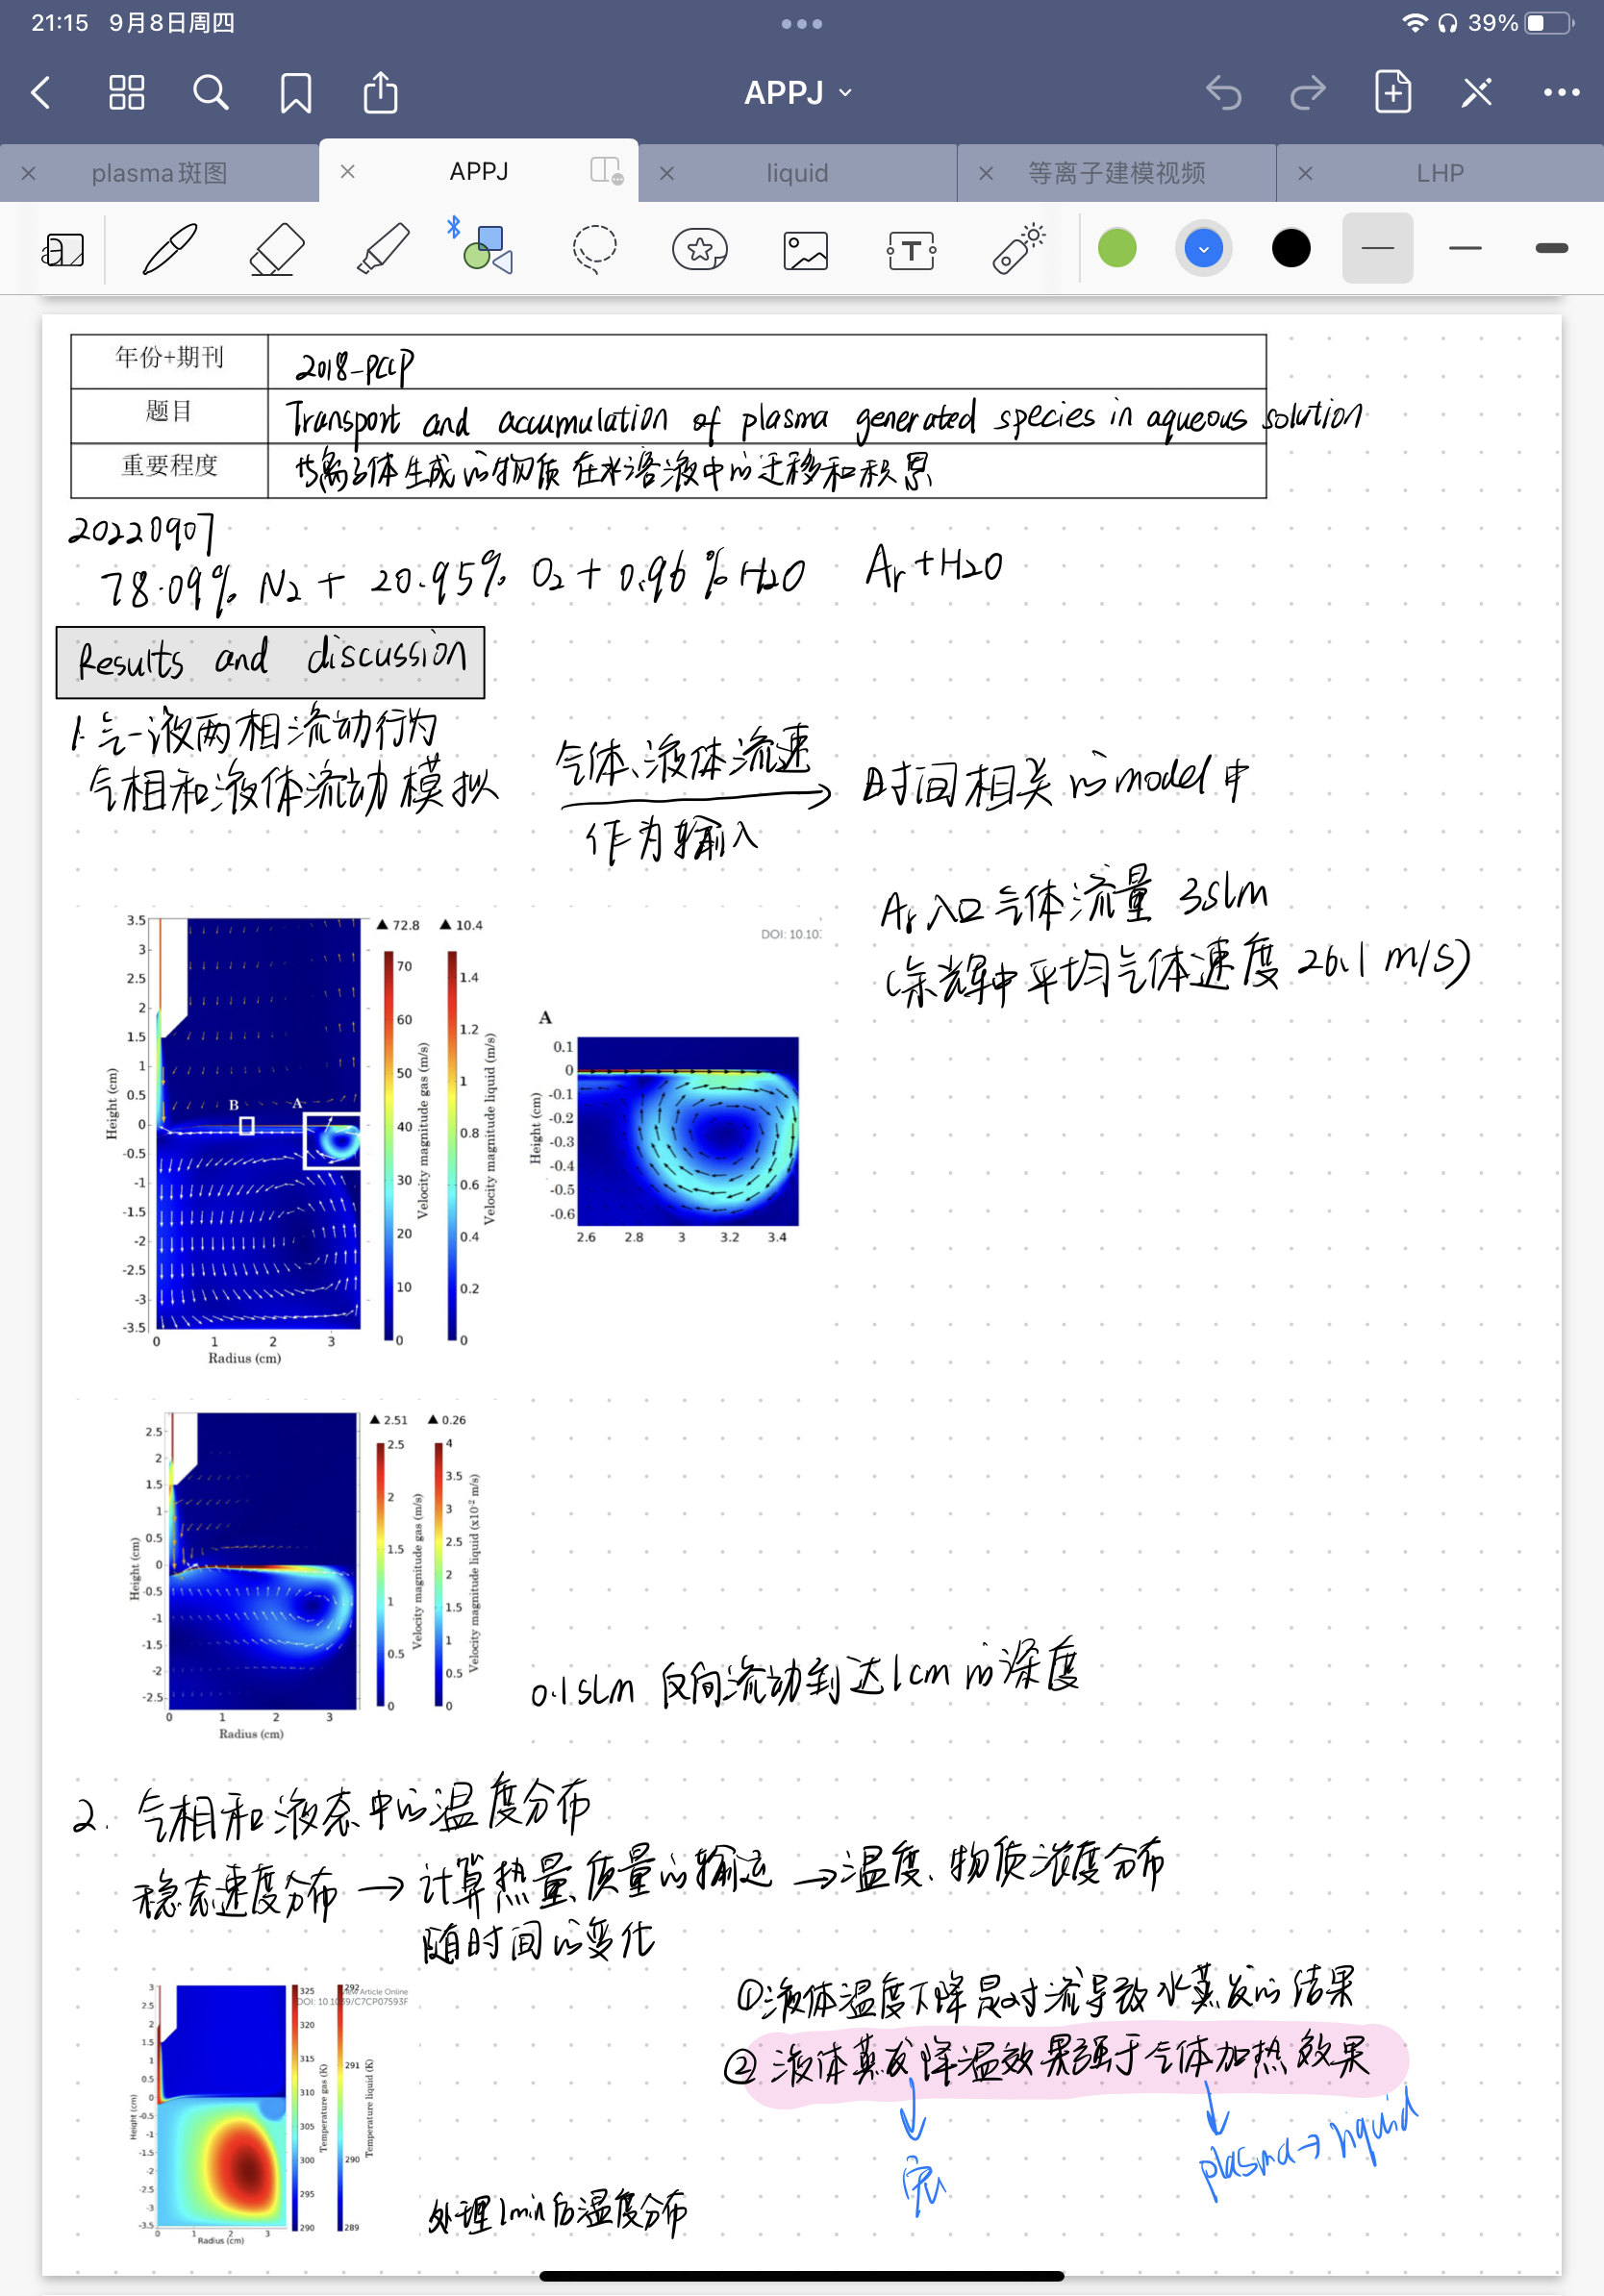 21:15 9月8日周四
39%
APPJ
plasma斑图
APPJ
liquid
等离子建模视频
LHP
年份+期刊
2018-PCCP
题目
Transport and accumulation of plasma generated species in aqueous solution
重要程度
等离子体生成的物质在水溶液中的迁移和积累
20220907
78.09% N2 + 20.95% O2 + 0.96% H2O Ar+H2O
Results and discussion
1. 气-液两相流动行为
气相和液体流动模拟
气体、液体流速
作为输入
时间相关的model中
Ar入口气体流量 3slm
(余辉中平均气体速度 26.1 m/s)
DOI: 10.10
▲72.8 ▲10.4
3.5
3
2.5
2
1.5
1
0.5
0
-0.5
-1
-1.5
-2
-2.5
-3
-3.5
Height (cm)
B A
0 1 2 3
Radius (cm)
70
60
50
40
30
20
10
0
Velocity magnitude gas (m/s)
1.4
1.2
1
0.8
0.6
0.4
0.2
0
Velocity magnitude liquid (m/s)
A
0.1
0
-0.1
-0.2
-0.3
-0.4
-0.5
-0.6
Height (cm)
2.6 2.8 3 3.2 3.4
▲2.51 ▲0.26
2.5
2
1.5
1
0.5
0
-0.5
-1
-1.5
-2
-2.5
Height (cm)
0 1 2 3
Radius (cm)
2.5
2
1.5
1
0.5
0
Velocity magnitude gas (m/s)
4
3.5
3
2.5
2
1.5
1
0.5
0
Velocity magnitude liquid (x10⁻² m/s)
0.1slm 反向流动到达1cm的深度
2. 气相和液态中的温度分布
稳态速度分布 → 计算热量、质量的输运 → 温度、物质浓度分布
随时间的变化
3
2.5
2
1.5
1
0.5
0
-0.5
-1
-1.5
-2
-2.5
-3
-3.5
Height (cm)
0 1 2 3
Radius (cm)
325
320
315
310
305
300
295
290
Temperature gas (K)
292
291
290
289
Temperature liquid (K)
View Article Online
DOI: 10.1039/C7CP07593F
处理1min后温度分布
①液体温度下降是对流导致水蒸发的结果
②液体蒸发降温效果强于气体加热效果
plasma→liquid